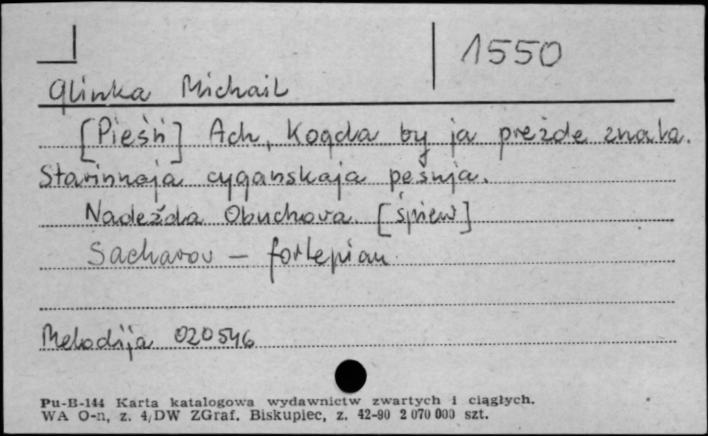 1550
Glinka Michail
[Pieśń] Ach, Kogda by ja preżde znała.
Starinnaja cyganskaja peśnja.
Nadeżda Obuchova [śpiew]
Sacharov — fortepian
Melodija 020546
Pu-B-144 Karta katalogowa wydawnictw zwartych i ciągłych.
WA O-n, z. 4/DW ZGraf. Biskupiec, z. 42-90 2 070 000 szt.